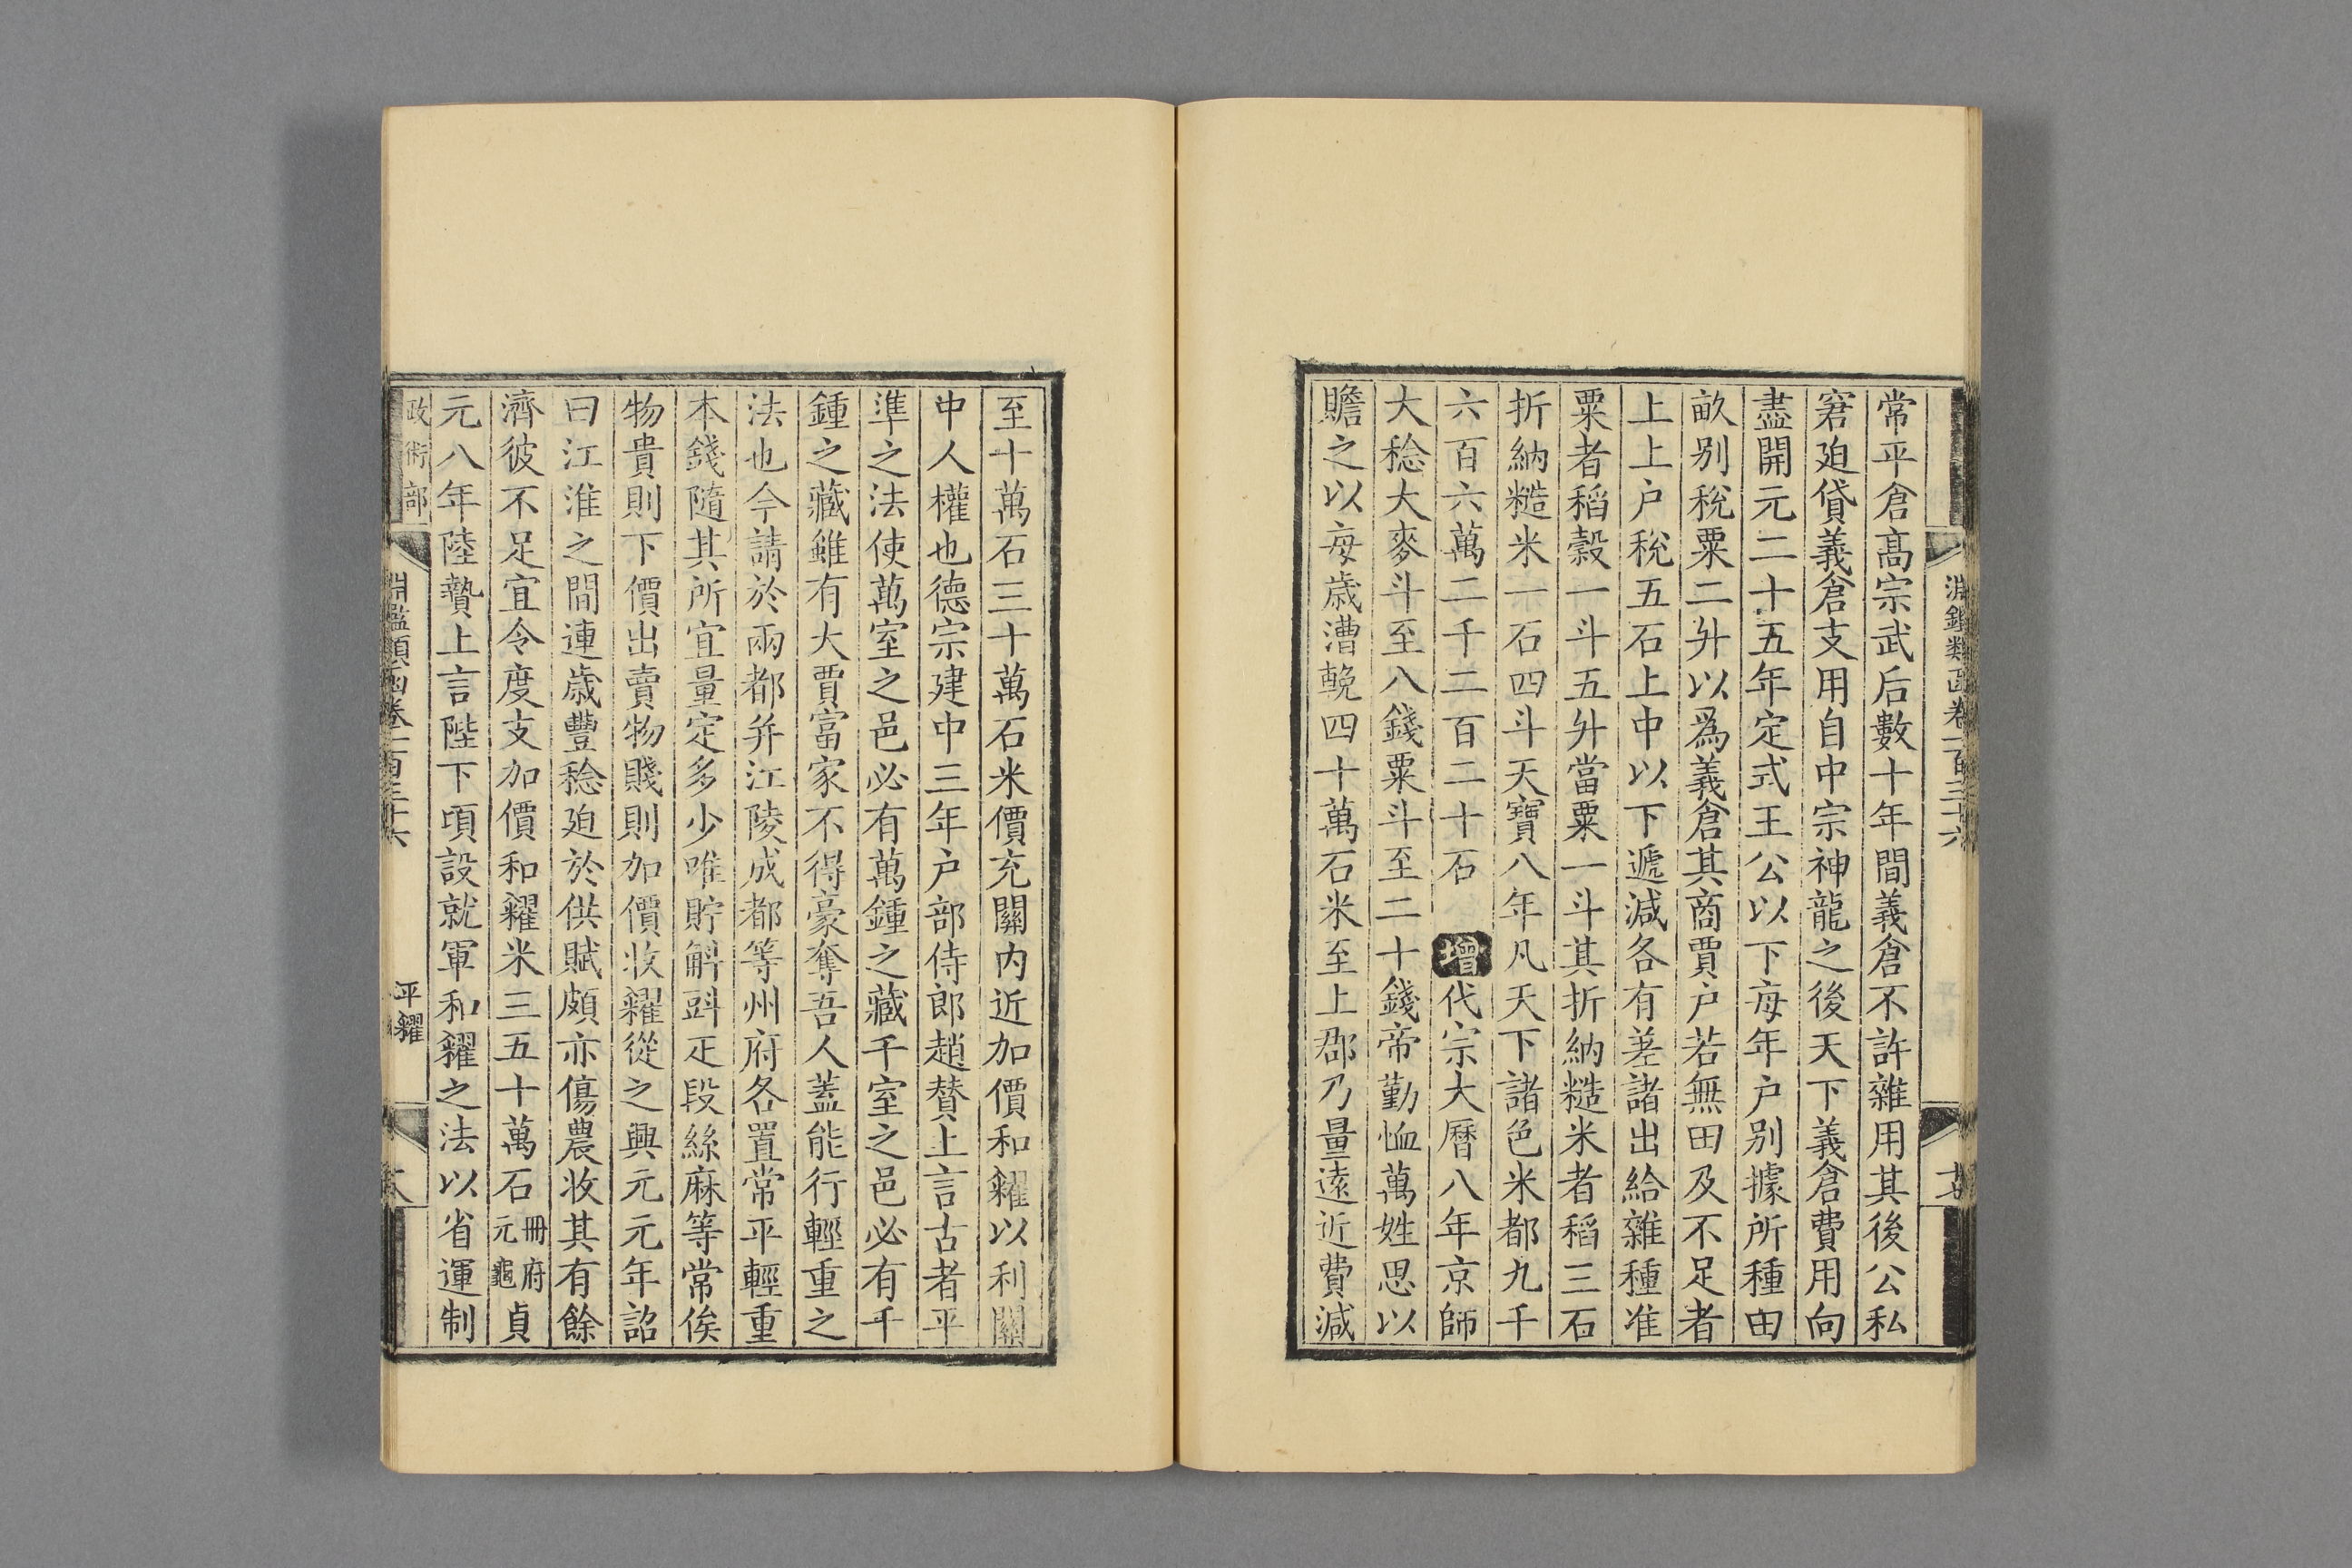 常平倉高宗武后數十年間義倉不許雜用其後公私
窘廹貸義倉支用自中宗神龍之後天下義倉費用向
盡開元二十五年定式王公以下每年户别據所種田
畝别稅粟二升以爲義倉其商賈户若無田及不足者
上上户稅五石上中以下遞減各有差諸出給雜種准
粟者稻穀一斗五升當粟一斗其折納糙米者稻三石
折納糙米一石四斗天寶八年凡天下諸色米都九千
六百六萬二千二百二十石 增 代宗大曆八年京師
大稔大麥斗至八錢粟斗至二十錢帝勤恤萬姓思以
贍之以每歲漕輓四十萬石米至上郡乃量遠近費減
至十萬石三十萬石米價充關内近加價和糴以利關
中人權也德宗建中三年户部侍郎趙賛上言古者平
準之法使萬室之邑必有萬鍾之藏千室之邑必有千
鍾之藏雖有大賈富家不得豪奪吾人蓋能行輕重之
法也今請於兩都并江陵成都等州府各置常平輕重
本錢隨其所宜量定多少唯貯斛㪷疋段絲麻等常俟
物貴則下價出賣物賤則加價收糴從之興元元年詔
曰江淮之間連歲豐稔廹於供賦頗亦傷農收其有餘
濟彼不足宜令度支加價和糴米三五十萬石 冊府元龜 貞
元八年陸贄上言陛下頃設就軍和糴之法以省運制
政術部
淵鑑類函卷一百三十六
平糴